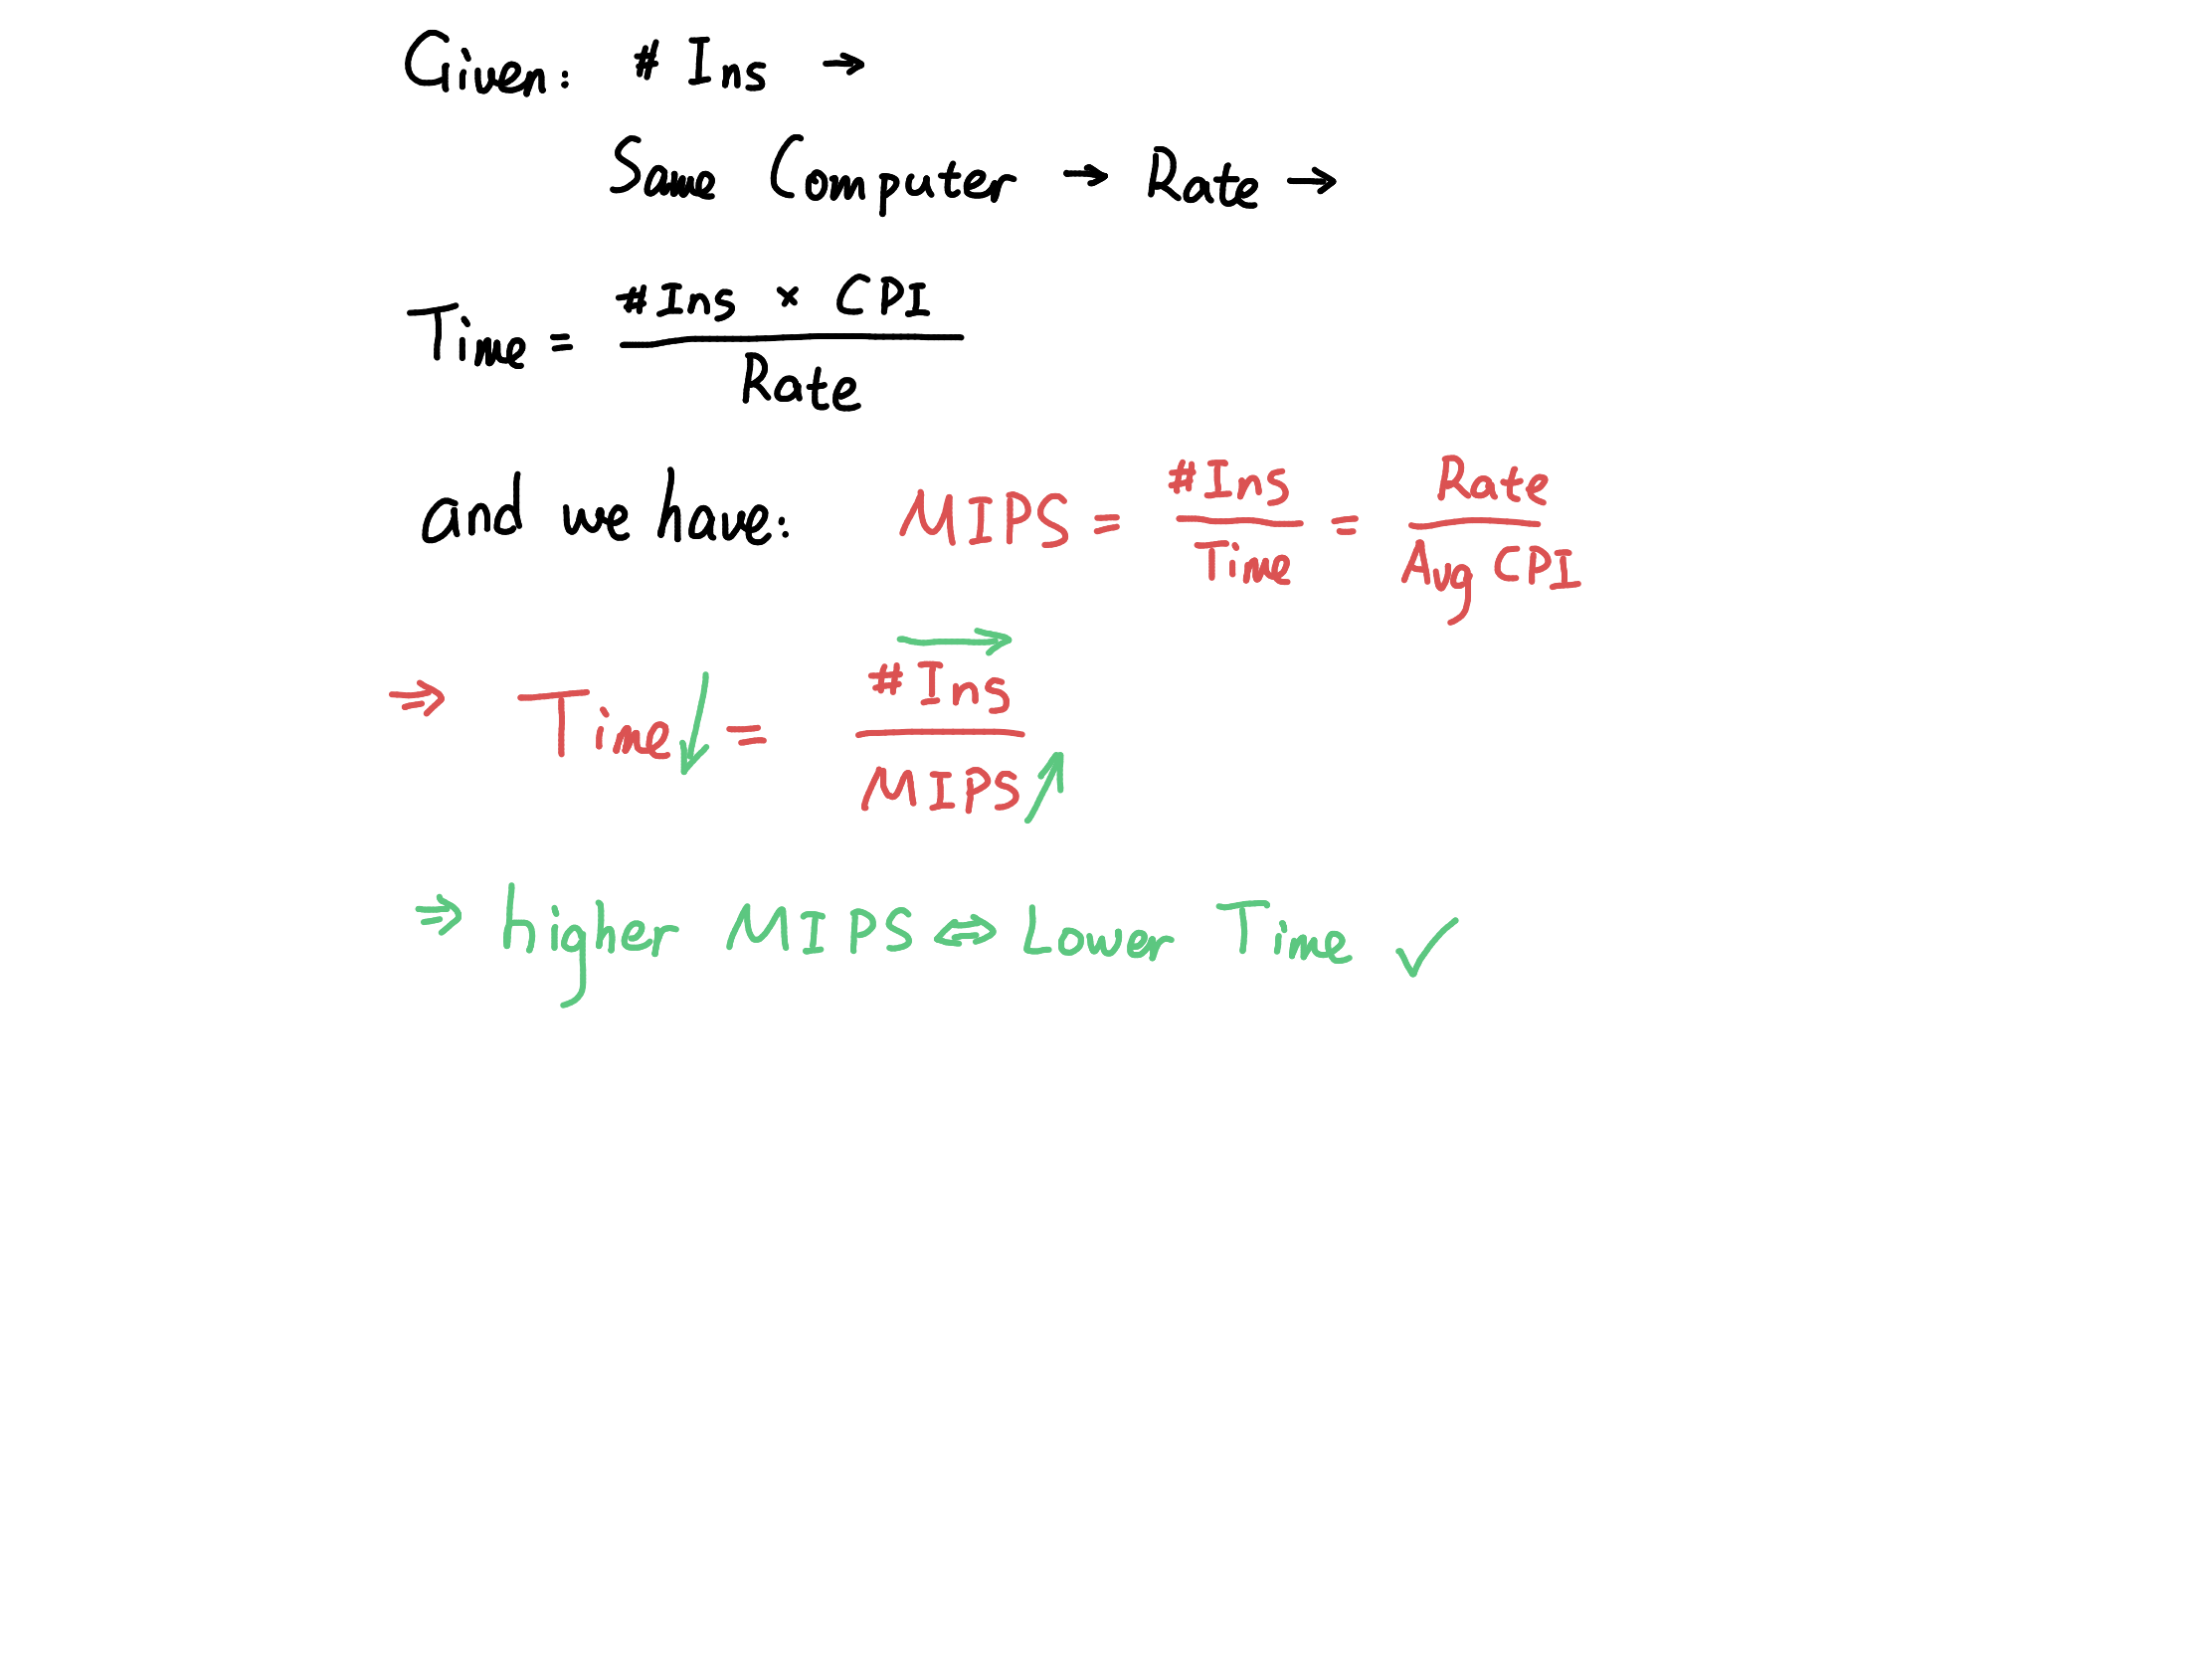 Given: # Ins →
Same Computer → Rate →
Time = #Ins × CPI / Rate
and we have: MIPS = #Ins / Time = Rate / Avg CPI
⇒ Time ↓ = #Ins → / MIPS ↑
⇒ higher MIPS ⇔ Lower Time ✓